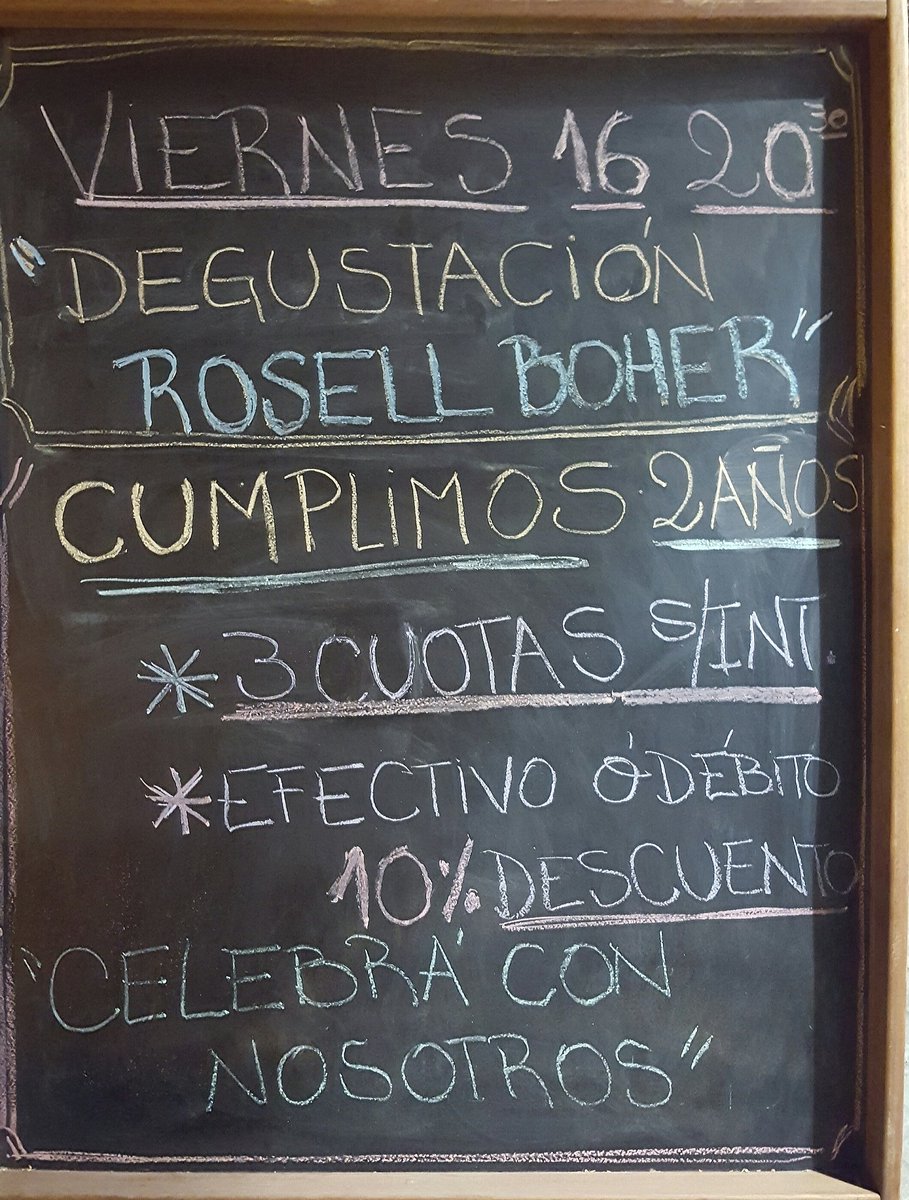 VIERNES 16 20³⁰
"DEGUSTACIÓN
ROSELL BOHER"
"CUMPLIMOS 2 AÑOS
* 3 CUOTAS S/INT.
* EFECTIVO Ó DÉBITO
10% DESCUENTO
"CELEBRÁ CON
NOSOTROS"